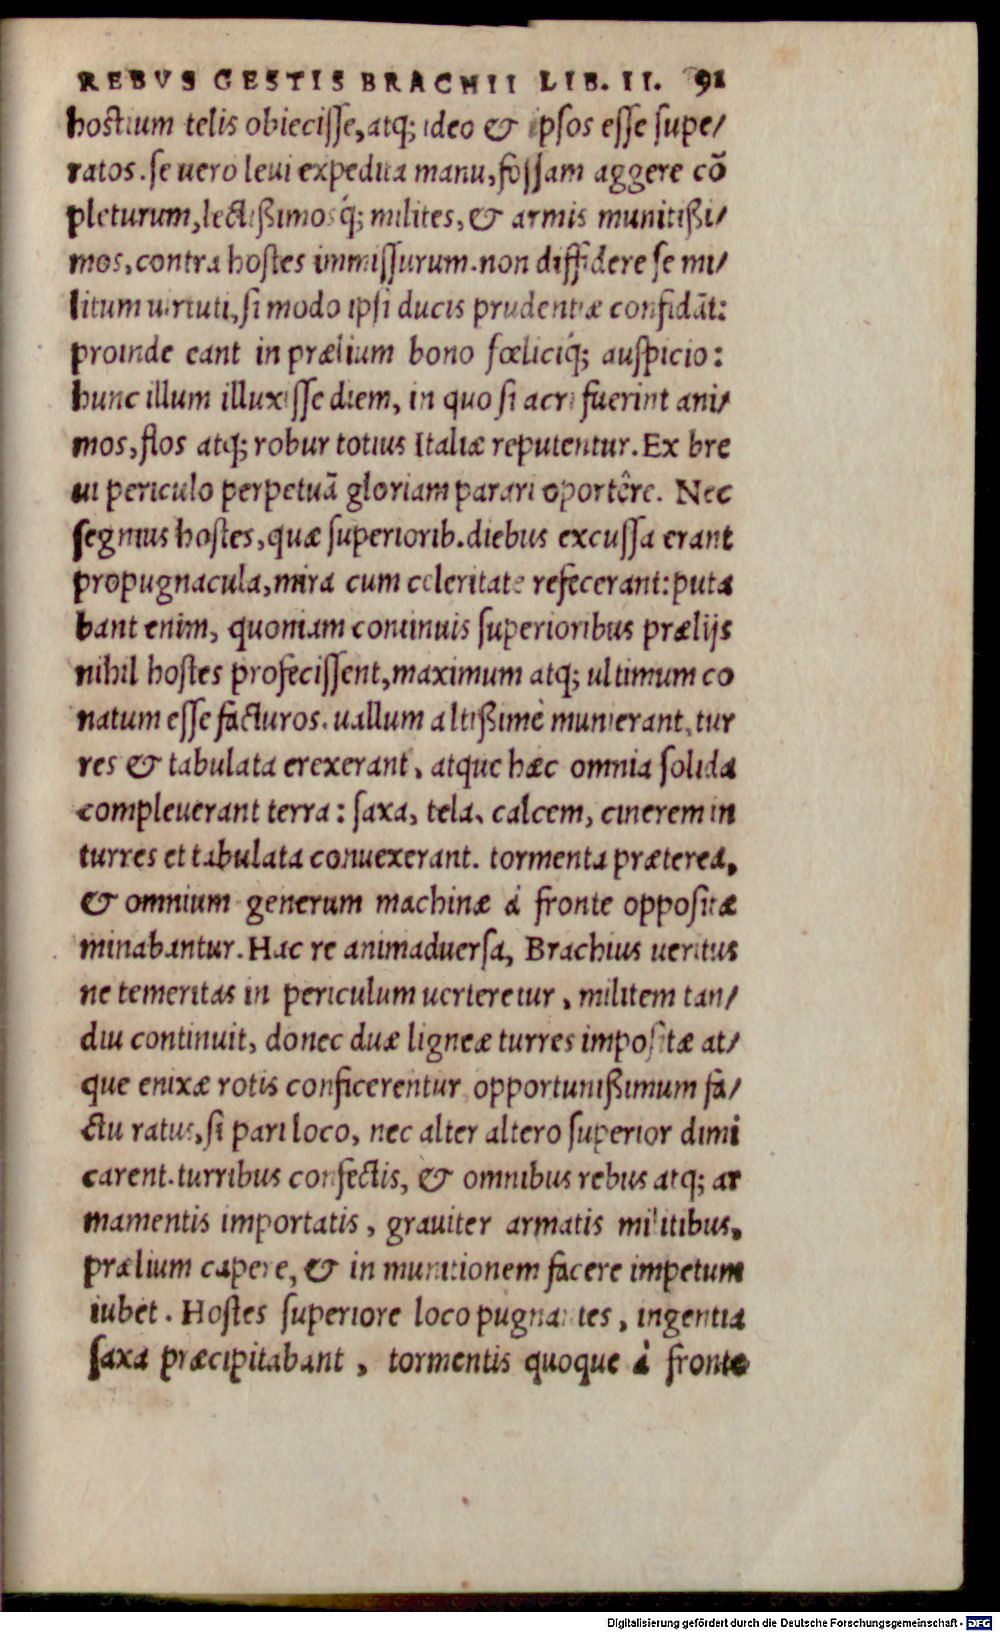 REBVS GESTIS BRACHII LIB. II. 91
hostium telis obiecisse, atq; ideo & ipsos esse supe/
ratos. se uero leui expedita manu, fossam aggere cõ
pleturum, lectißimosq́; milites, & armis munitißi/
mos, contra hostes immissurum. non diffidere se mi/
litum uirtuti, si modo ipsi ducis prudentiæ confidãt:
proinde eant in prælium bono fœliciq́; auspicio:
hunc illum illuxisse diem, in quo si acri fuerint ani/
mos, flos atq; robur totius Italiæ reputentur. Ex bre
ui periculo perpetuã gloriam parari oportêre. Nec
segnius hostes, quæ superiorib. diebus excussa erant
propugnacula, mira cum celeritate refecerant: puta
bant enim, quoniam continuis superioribus prælijs
nihil hostes profecissent, maximum atq; ultimum co
natum esse facturos. uallum altißimè munierant, tur
res & tabulata erexerant, atque hæc omnia solida
compleuerant terra: saxa, tela, calcem, cinerem in
turres et tabulata conuexerant. tormenta præterea,
& omnium generum machinæ à fronte oppositæ
minabantur. Hac re animaduersa, Brachius ueritus
ne temeritas in periculum uerteretur, militem tan/
diu continuit, donec duæ ligneæ turres impositæ at/
que enixæ rotis conficerentur opportunißimum fa/
ctu ratus, si pari loco, nec alter altero superior dimi
carent. turribus confectis, & omnibus rebus atq; ar
mamentis importatis, grauiter armatis militibus,
prælium capere, & in munitionem facere impetum
iubet. Hostes superiore loco pugnantes, ingentia
saxa præcipitabant, tormentis quoque à fronte
Digitalisierung gefördert durch die Deutsche Forschungsgemeinschaft - DFG